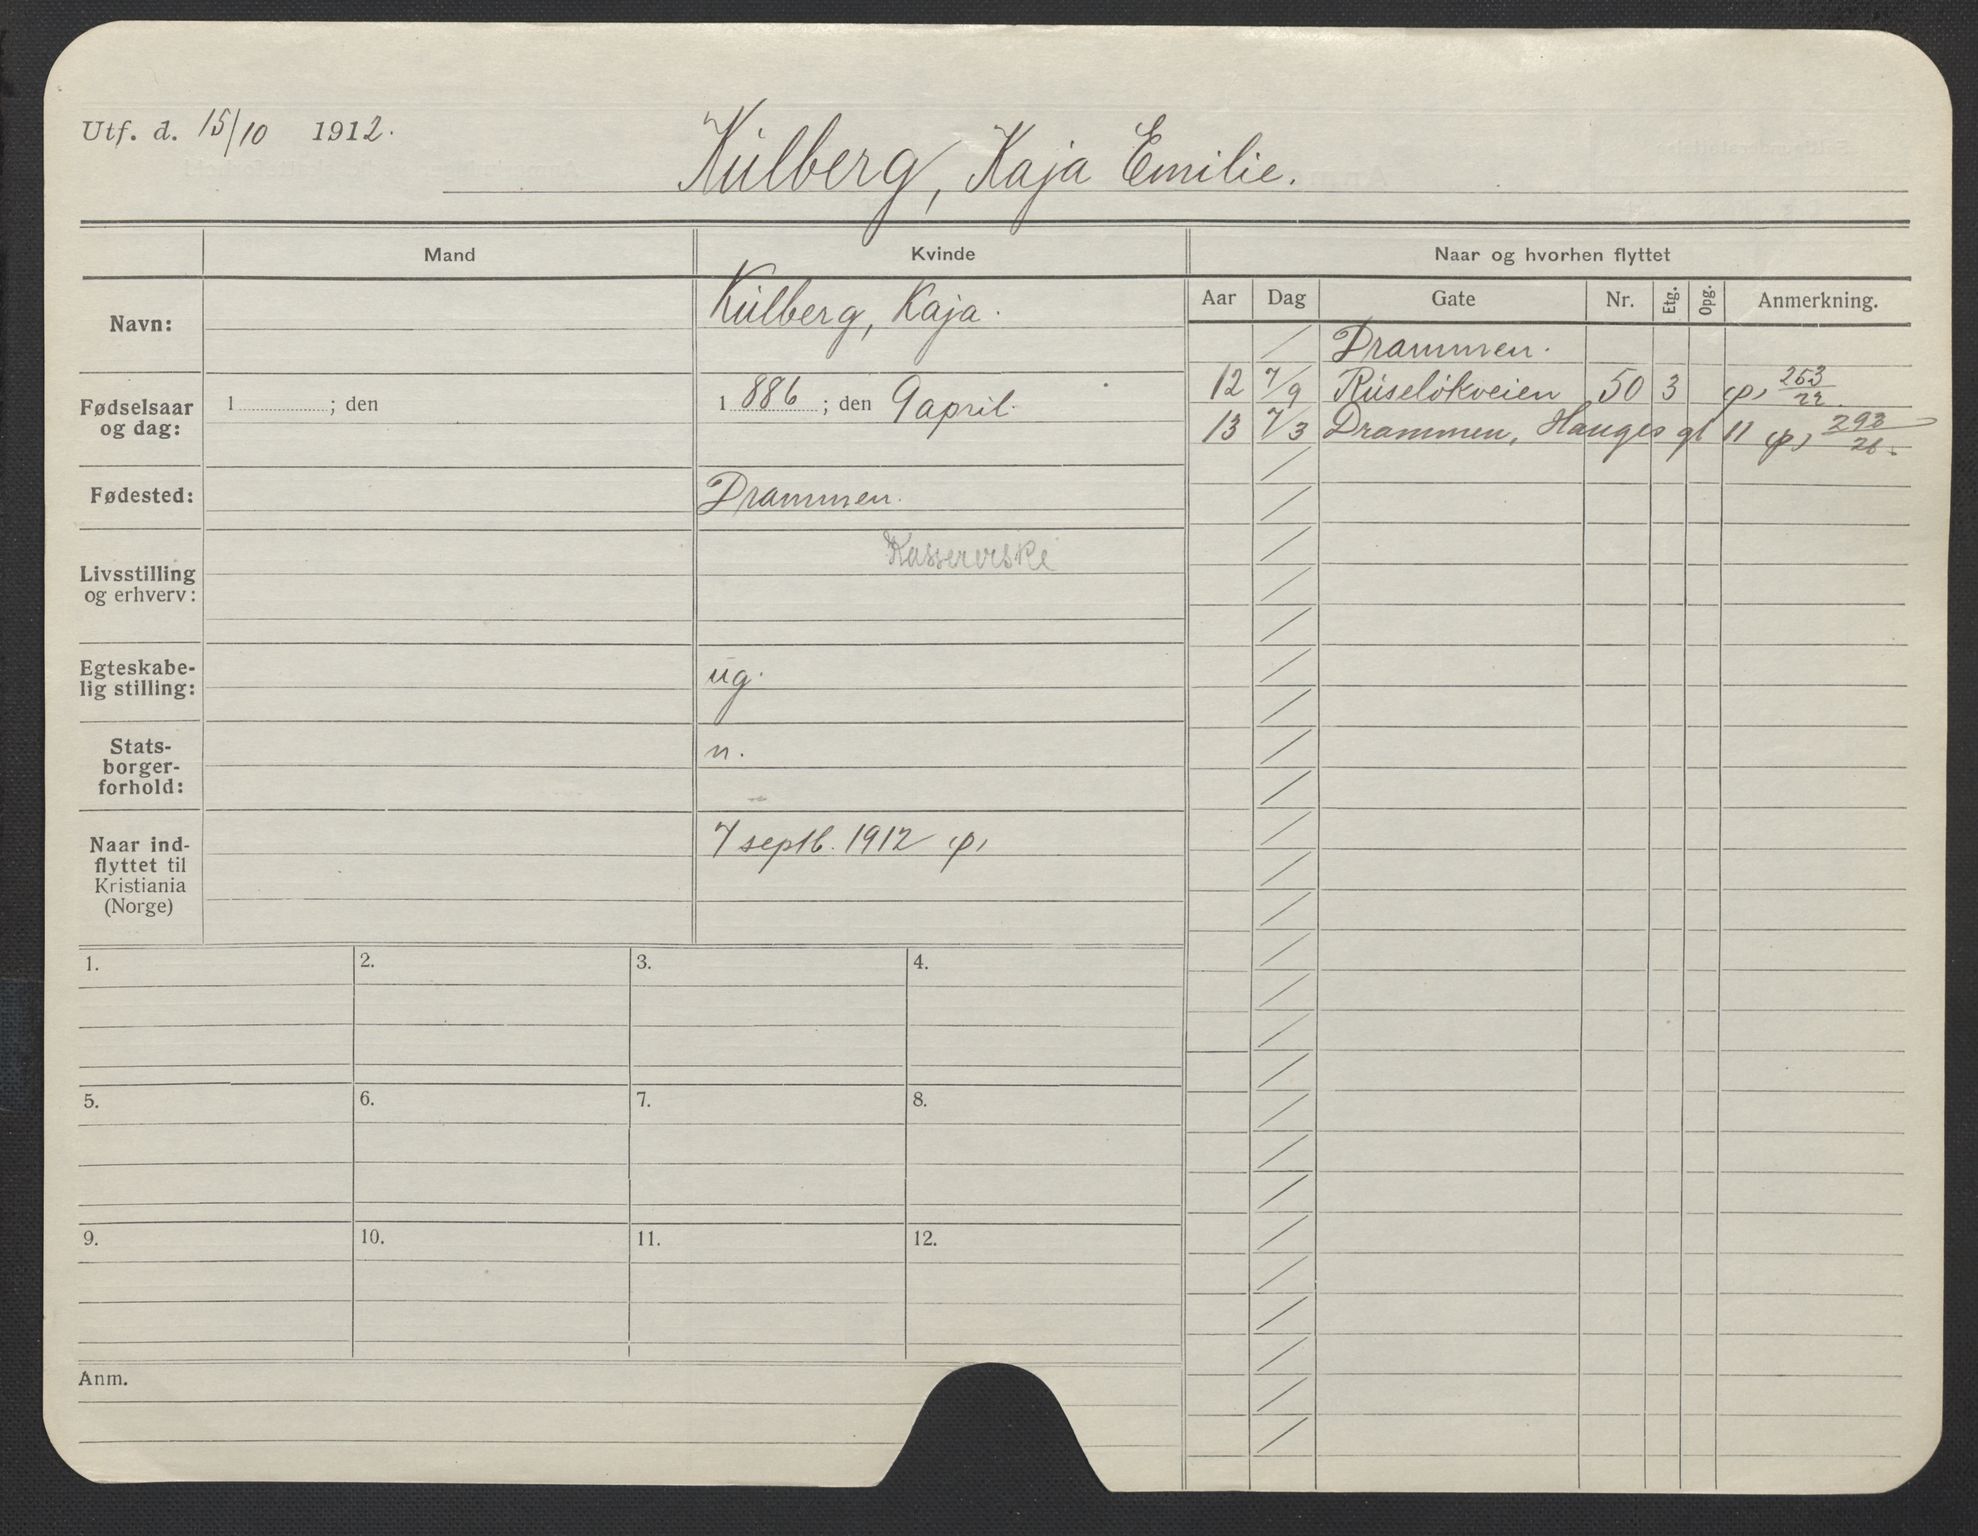 Utf. d. 15/10 1912.
Kulberg, Kaja Emilie.
Mand
Kvinde
Naar og hvorhen flyttet
Aar Dag Gate Nr. Etg. Opg. Anmerkning.
Navn:
Kulberg, Kaja.
Fødselsaar
og dag:
1 ; den
1 886 ; den 9 april.
Fødested:
Drammen.
Livsstilling
og erhverv:
Kassererske
Egteskabe-
lig stilling:
ug.
Stats-
borger-
forhold:
n.
Naar ind-
flyttet til
Kristiania
(Norge)
7 septb. 1912
Drammen.
12 7/9 Ruseløkveien 50 3 253/22
13 7/3 Drammen, Hauges gt 11 293/26.
1. 2. 3. 4.
5. 6. 7. 8.
9. 10. 11. 12.
Anm.